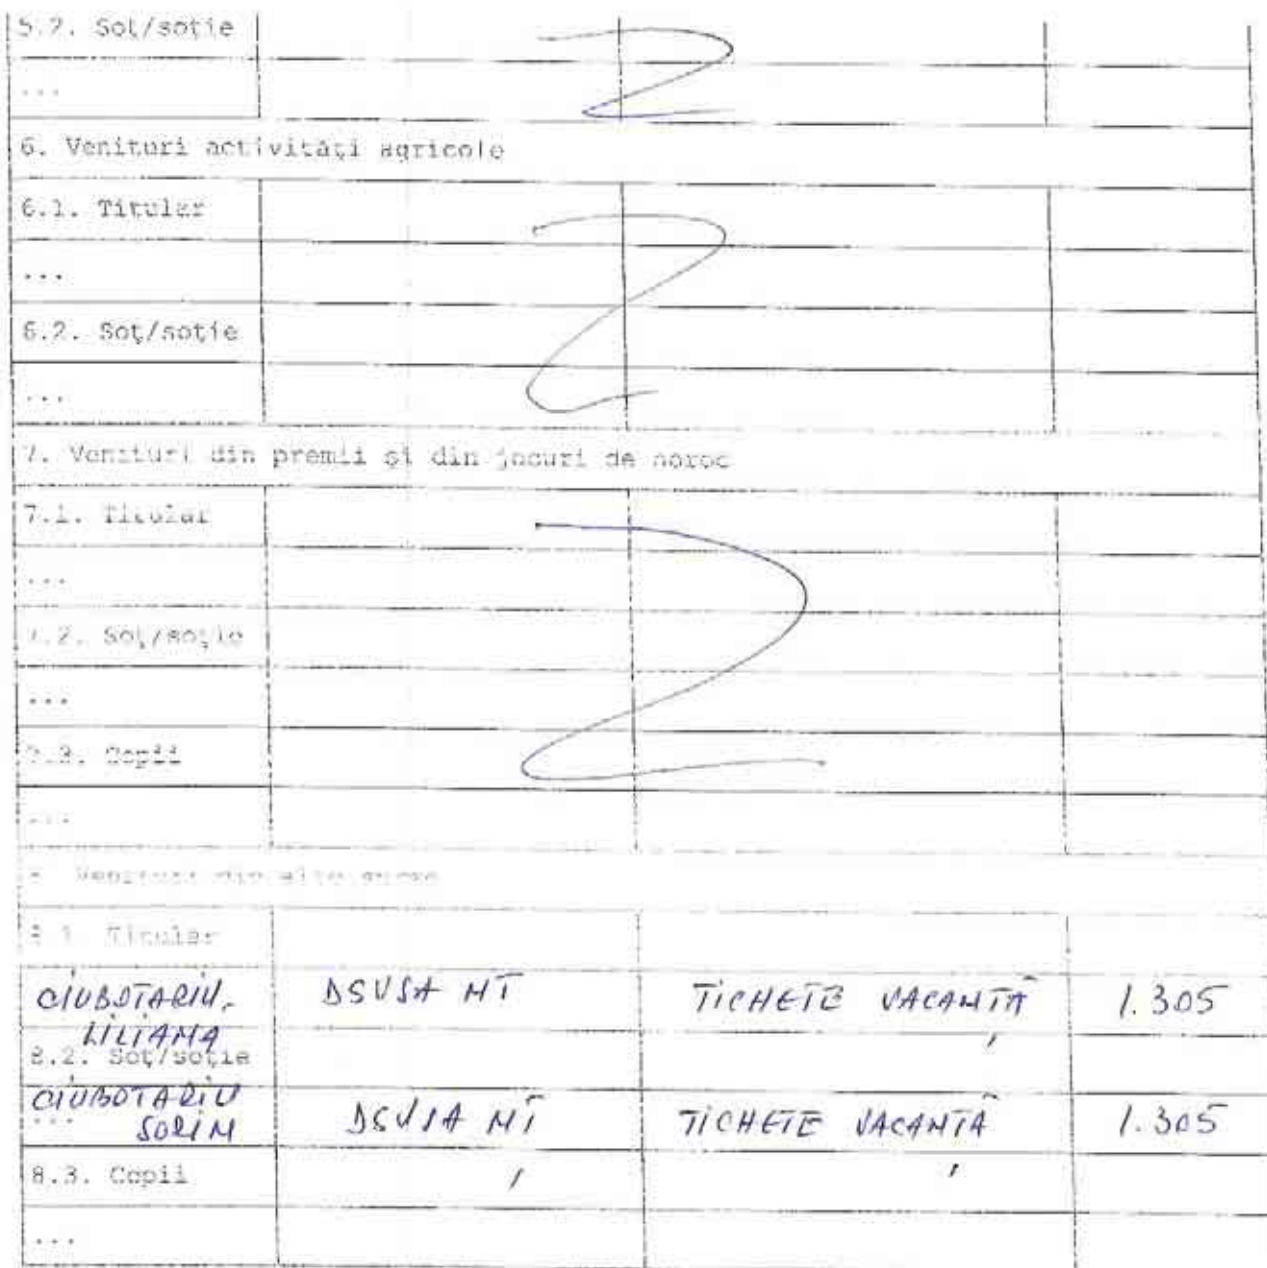 5.2. Soţ/soţie
...
6. Venituri activităţi agricole
6.1. Titular
...
6.2. Soţ/soţie
...
7. Venituri din premii şi din jocuri de noroc
7.1. Titular
...
7.2. Soţ/soţie
...
7.3. Copii
...
8. Venituri din alte surse
8.1. Titular
CIUBOTARIU LILIANA DSVSA NŢ TICHETE VACANŢĂ 1.305
8.2. Soţ/soţie
CIUBOTARIU
... SORIN DSVSA NŢ TICHETE VACANŢĂ 1.305
8.3. Copii
...